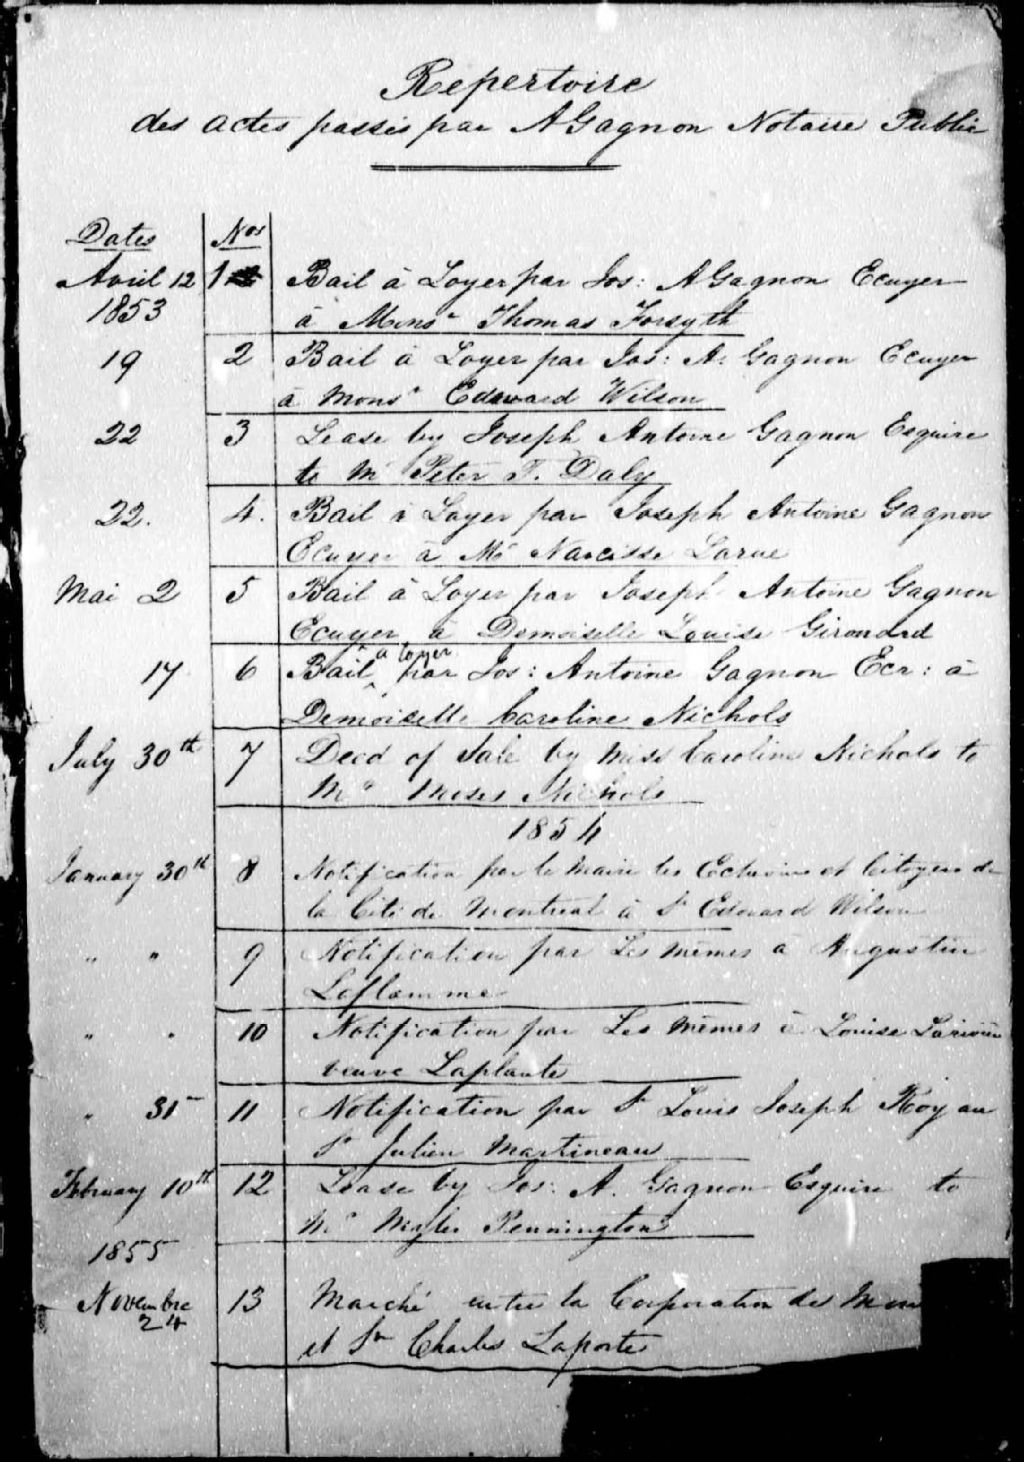 Repertoire
des actes passés par A Gagnon Notaire Public
Dates Nos
Avril 12 1 Bail à Loyer par Jos: A Gagnon Ecuyer
1853 à Monsr Thomas Forsyth
19 2 Bail à Loyer par Jos: A: Gagnon Ecuyer
à Monsr Edward Wilson
22 3 Lease by Joseph Antoine Gagnon Esquire
to Mr Peter T. Daly
22. 4. Bail à Loyer par Joseph Antoine Gagnon
Ecuyer à Mr Narcisse Larue
Mai 2 5 Bail à Loyer par Joseph Antoine Gagnon
Ecuyer à Demoiselle Louise Girouard
17 6 Bail à loyer par Jos: Antoine Gagnon Ecr: à
Demoiselle Caroline Nichols
July 30th 7 Deed of Sale by Miss Caroline Nichols to
Mr Moses Nichols
1854
January 30th 8 Notification par le Maire les Echevins et Citoyens de
la Cité de Montreal à Sr Edward Wilson
" " 9 Notification par Les mêmes à Augustin
Laflamme
" " 10 Notification par Les mêmes à Louise Larivière
veuve Laplante
" 31 11 Notification par Sr Louis Joseph Roy au
Sr Julien Martineau
February 10th 12 Lease by Jos: A. Gagnon Esquire to
Mr Pennington
1855
Novembre 13 Marché entre la Corporation de Mon
24 et Sr Charles Laporte